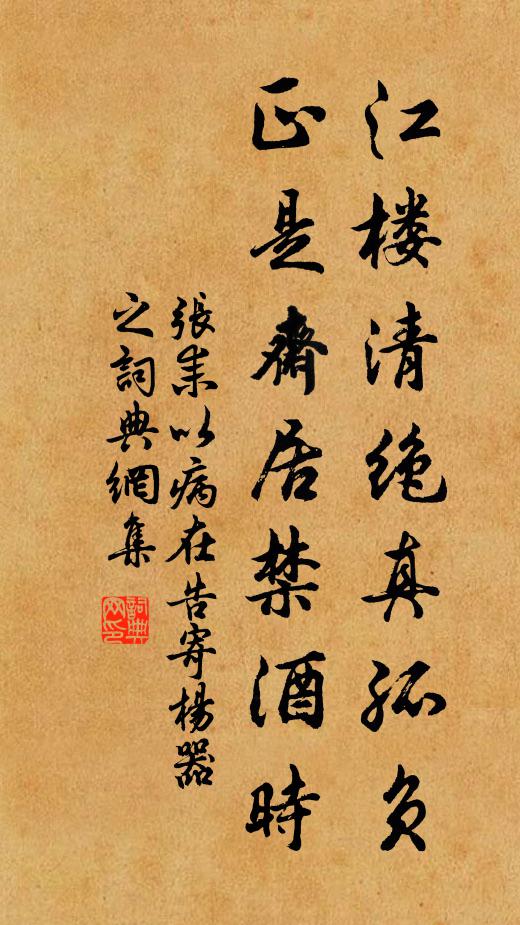 江楼清绝真孤负
正是斋居禁酒時
張耒以病在告寄楊器
之詞典網集
詞典
网印